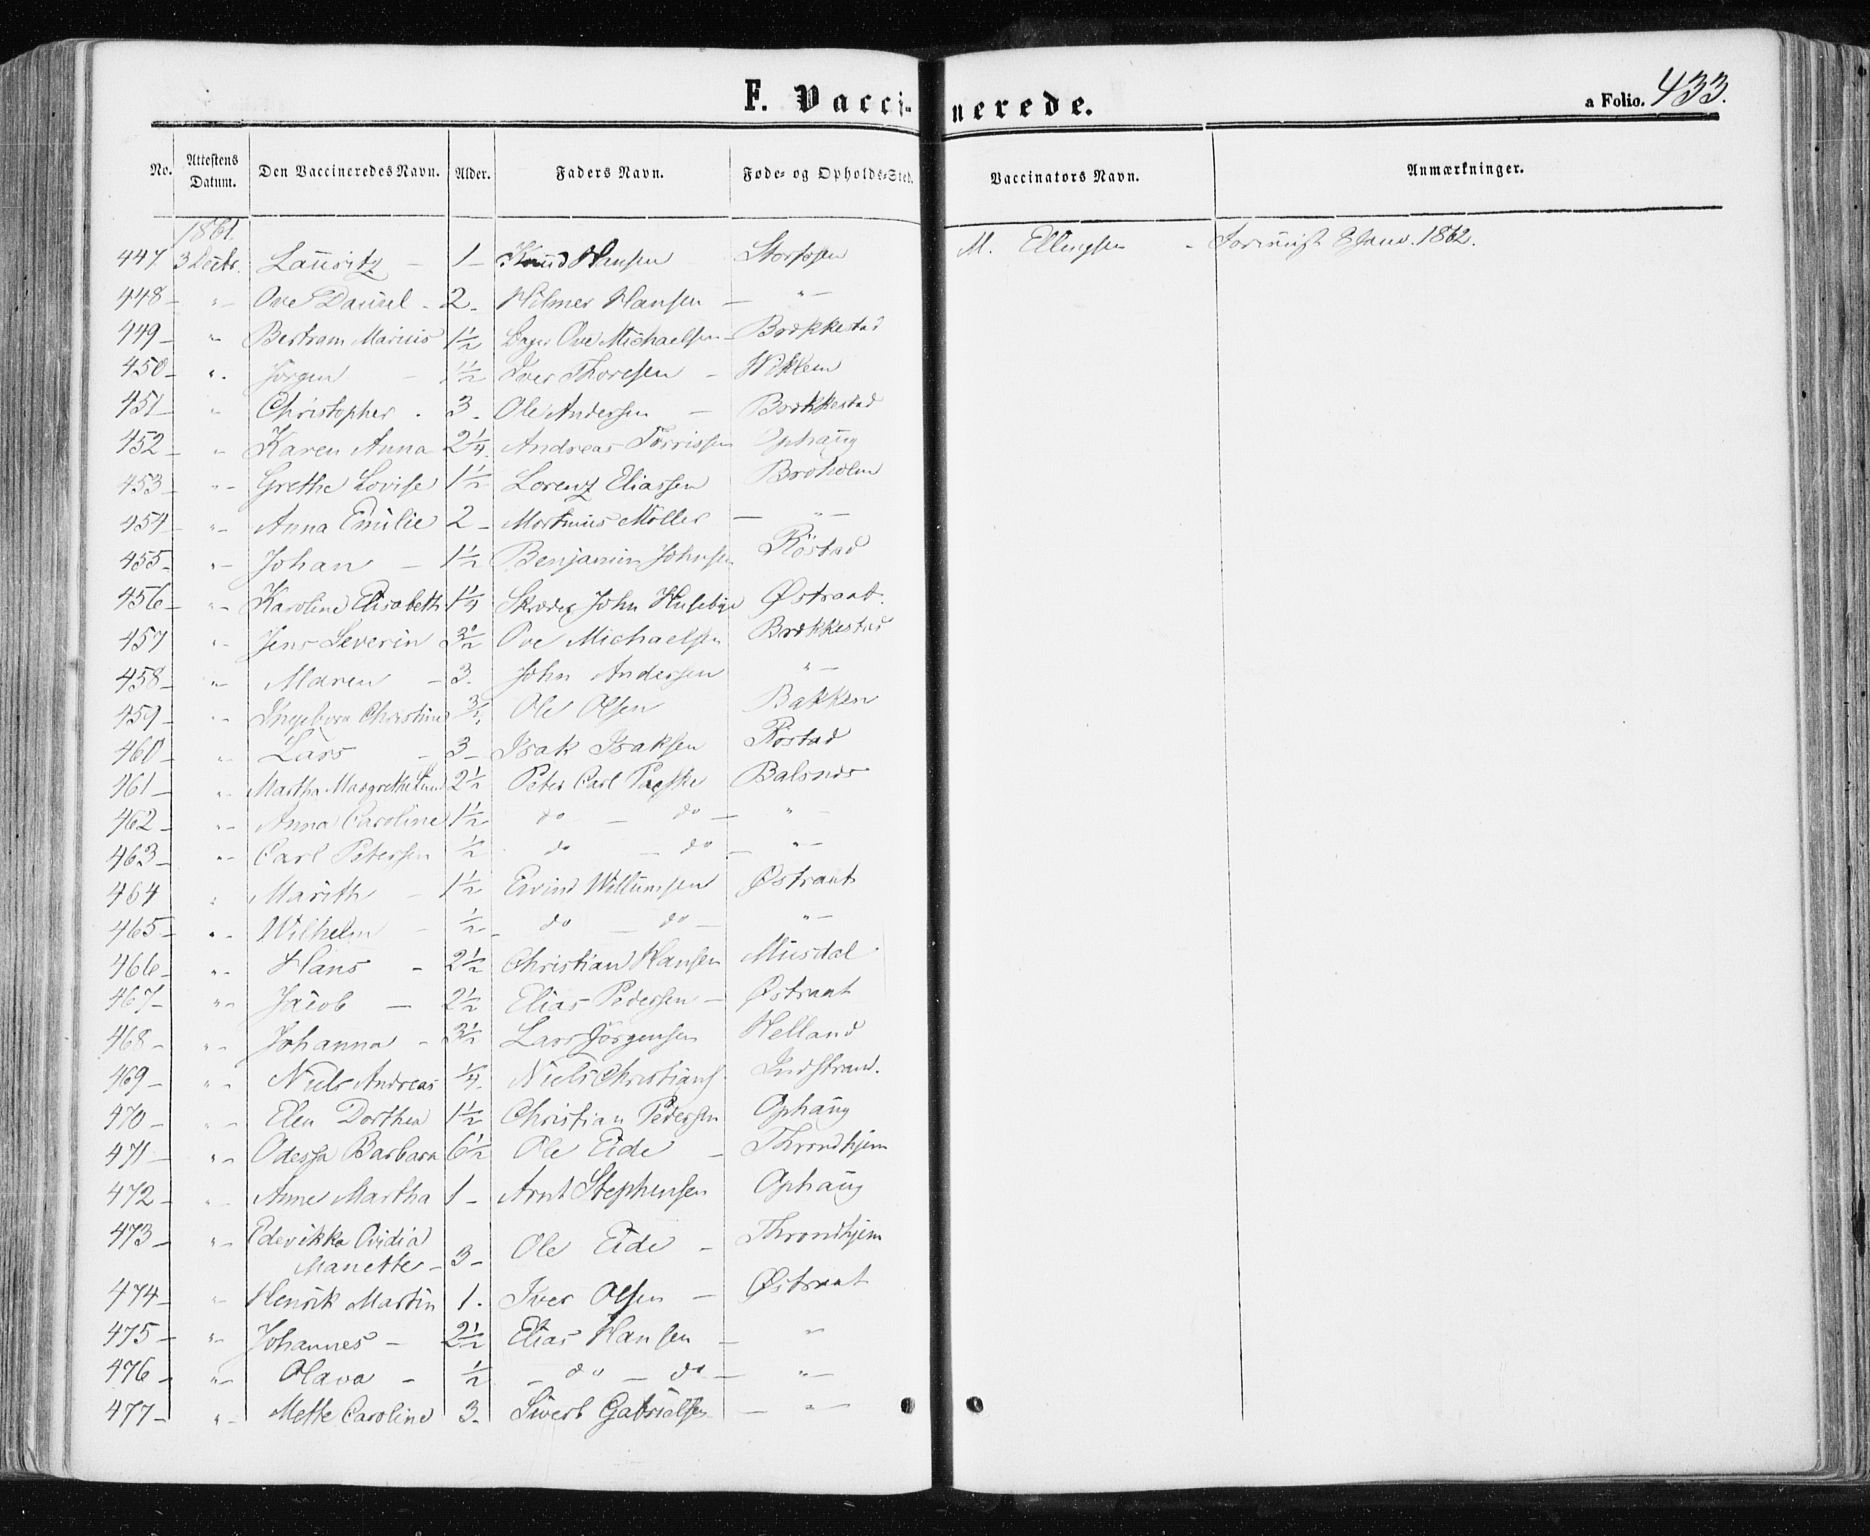 F. Vaccinerede.
a Folio. 433.
No. Attestens Datum. Den Vaccineredes Navn. Alder. Faders Navn. Føde- og Opholds-Sted. Vaccinators Navn. Anmærkninger.
1861
447 3 Lauritz - 1 - Knud Hansen Storfosen M. Ellingsen - 8 Janv. 1862.
448 - " - Ove Daniel - 2 - Hilmer Hansen - " -
449 - " Bertram Marius 1½ Ove Michaelsen - Brækkestad
450 - " - Jørgen - 1½ Iver Thoresen - Viklem
451 - " Christopher . 3 - Ole Andersen - Brækkestad
452 - " Karen Anna 2¼ Andreas Torrissen Ophaug
453 - " - Grethe Lovise 1½ Lorenz Eliassen Broholm
454 - " - Anna Emilie 2 - Martinus Møller - " -
455 - " - Johan - 1½ Benjamin Johnsen Røstad
456 - " - Karoline Elisabeth 1¼ Skræder John Husebye Østraat.
457 " - Jens Severin 3½ Ove Michaelsen Brækkestad
458 - " - Maren - 3. John Andersen " -
459 - " - Ingeborg Christine Ole Olsen Bakken
460 - " - Lars - 3 - Isak Isaksen Røstad
461 - " - Martha Margrethe 2½ Peter Carl Balsnes
462 - " - Anna Caroline 1½ do - do - " -
463 - " - Carl Petersen ½ do - do - " -
464 " Marith - 1½ Eivind Willumsen Østraat
465 - " - Wilhelm - ½ - do - do - " -
466 - " - Hans - 2½ Christian Hansen Musdal
467 - " - Jacob - 2½ Elias Pedersen - Østraat
468 - " - Johanna - 3½ Lars Jørgensen Helland
469 - " - Niels Andreas ¼ Niels Christians. Indstrand.
470 - " - Elen Dorthea 1½ Christian Pedersen Ophaug
471 - " - Odessa Barbara 6½ Ole Eide - Throndhjem
472 - " - Anne Martha 1 - Arnt Stephensen Ophaug
473 - " - Edevikka Ovidia
Manette - 3 - Ole Eide - Throndhjem
474 - " - Henrik Martin 1. Iver Olsen - Østraat
475 - " - Johannes - 2½ Elias Hansen - " -
476 - " - Olava - ½ - do - do - " -
477 - " - Mette Caroline 3 - Sivert Gabrielsen - " -